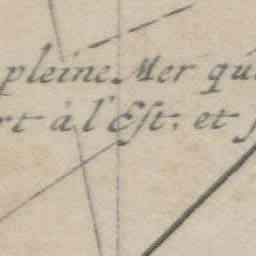 pleine Mer qu
rt à l'Est. et